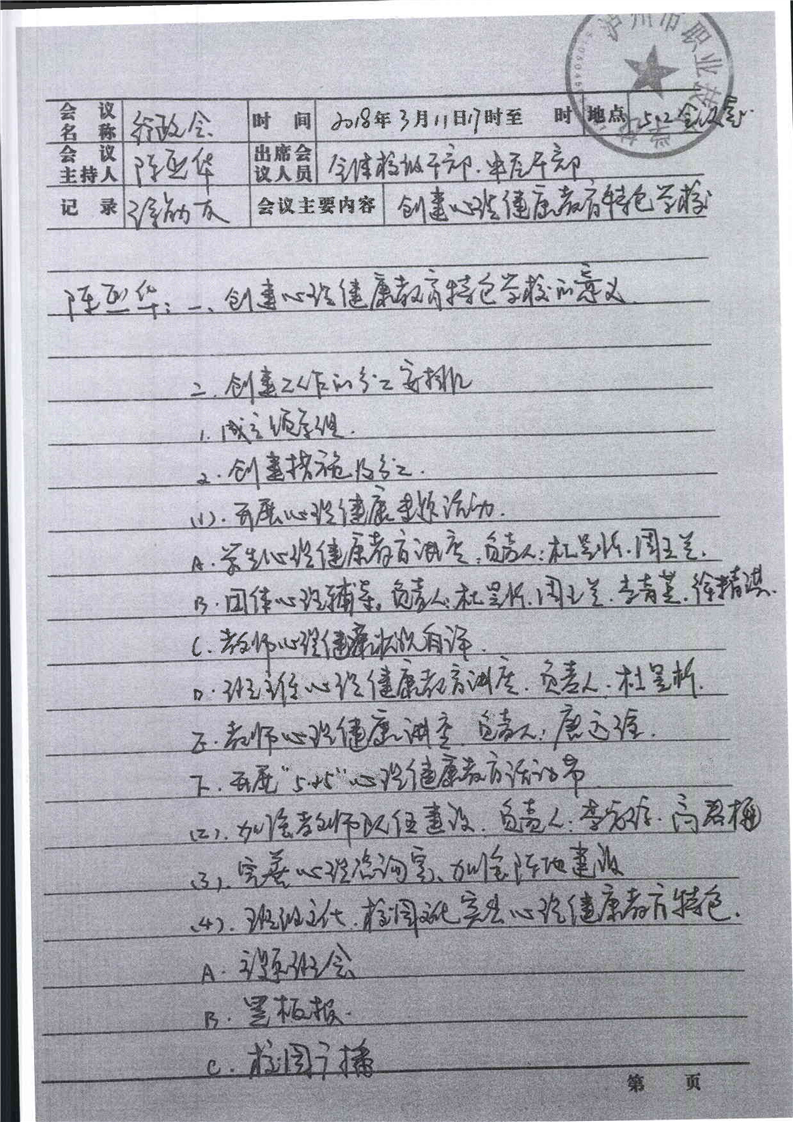 泸州市职业技
会议名称 行政会 时间 2018年3月11日17时至 时 地点 502会议室
会议主持人 陈亚华 出席会议人员 全体校级干部、中层干部
记录 会议主要内容 创建心理健康教育特色学校
陈亚华：一、创建心理健康教育特色学校的意义
二、创建工作的分工安排
1. 成立领导组.
2. 创建措施及分工.
(1). 开展心理健康专题活动.
A. 学生心理健康教育讲座，负责人：杜 周玉兰.
B. 团体心理辅导。负责人：杜 周玉兰、李青 、徐精
C. 教师心理健康状况自评.
D. 班主任心理健康教育讲座. 负责人：杜
E. 教师心理健康讲座. 负责人：
F. 开展“5.25”心理健康教育活动节
(2). 加强教师队伍建设. 负责人：李 高君梅
(3). 完善心理咨询室、加强阵地建设
(4). 班级文化、校园文化突出心理健康教育特色.
A. 主题班会
B. 黑板报.
C. 校园广播
第 页